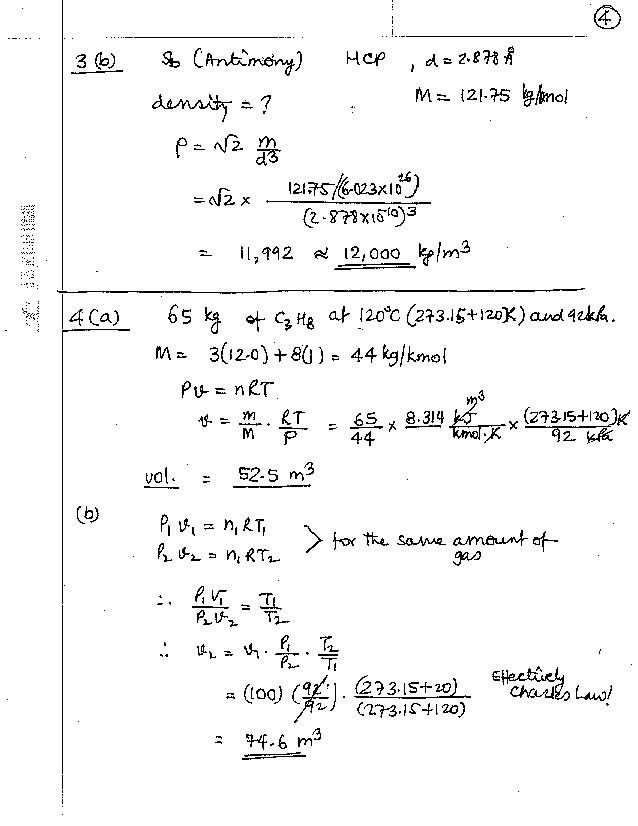 4
3 (b) Sb (Antimony) HCP , d = 2.878 Å
density = ? M = 121.75 kg/kmol
ρ = √2 m/d3
= √2 × 121.75/(6.023×10^26) / (2.878×10^-10)^3
= 11,992 ≈ 12,000 kg/m^3
4(a) 65 kg of C3H8 at 120°C (273.15+120K) and 92kPa.
M = 3(12.0) + 8(1) = 44 kg/kmol
Pv = nRT
v = m/M · RT/P = 65/44 × 8.314 kJ/kmol·K m^3 × (273.15+120)K/92 kPa
vol. = 52.5 m^3
(b)
P1 v1 = n1 RT1
P2 v2 = n1 RT2 > for the same amount of gas
∴ P1V1/P2V2 = T1/T2
∴ v2 = v1 · P1/P2 · T2/T1
= (100) (92/92) · (273.15+20)/(273.15+120) Effectively Charles Law!
= 74.6 m^3